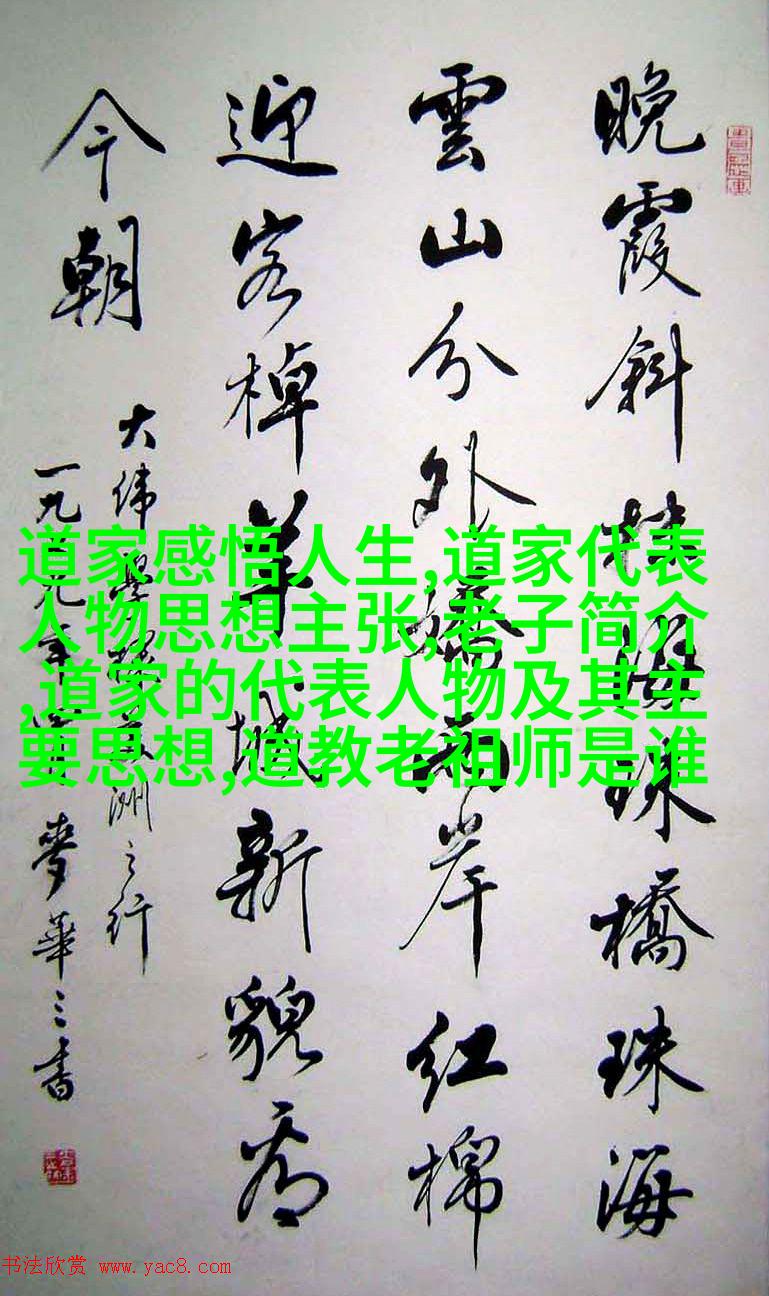 晚霞斜珠橋珠海
雲山分外嬌兩岸紅棉
迎客棹羊城新貌看
今朝
大偉學洲之行
一九九年麥華三書
道家感悟人生,道家代表
人物思想主张,老子简介
,道家的代表人物及其主
要思想,道教老祖师是谁
书法欣赏 www.yac8.com